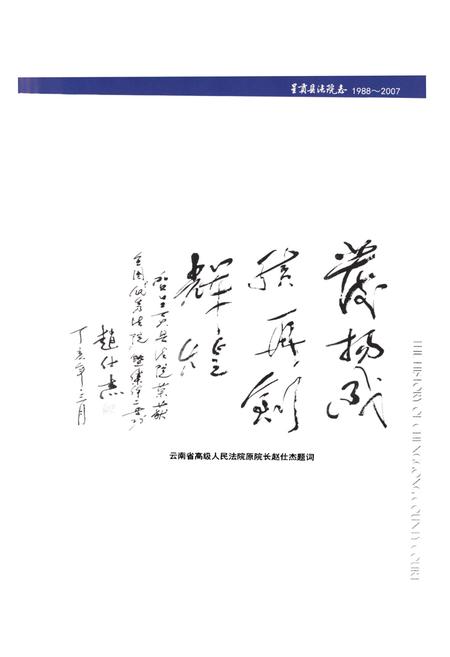 呈贡县法院志 1988～2007
發扬成
绩再創
輝煌
贺呈贡县法院荣获
全国优秀法院暨集体二等功
趙仕杰
丁亥年三月
云南省高级人民法院原院长赵仕杰题词
THE HISTORY OF CHENGGONG COUNTY COURT